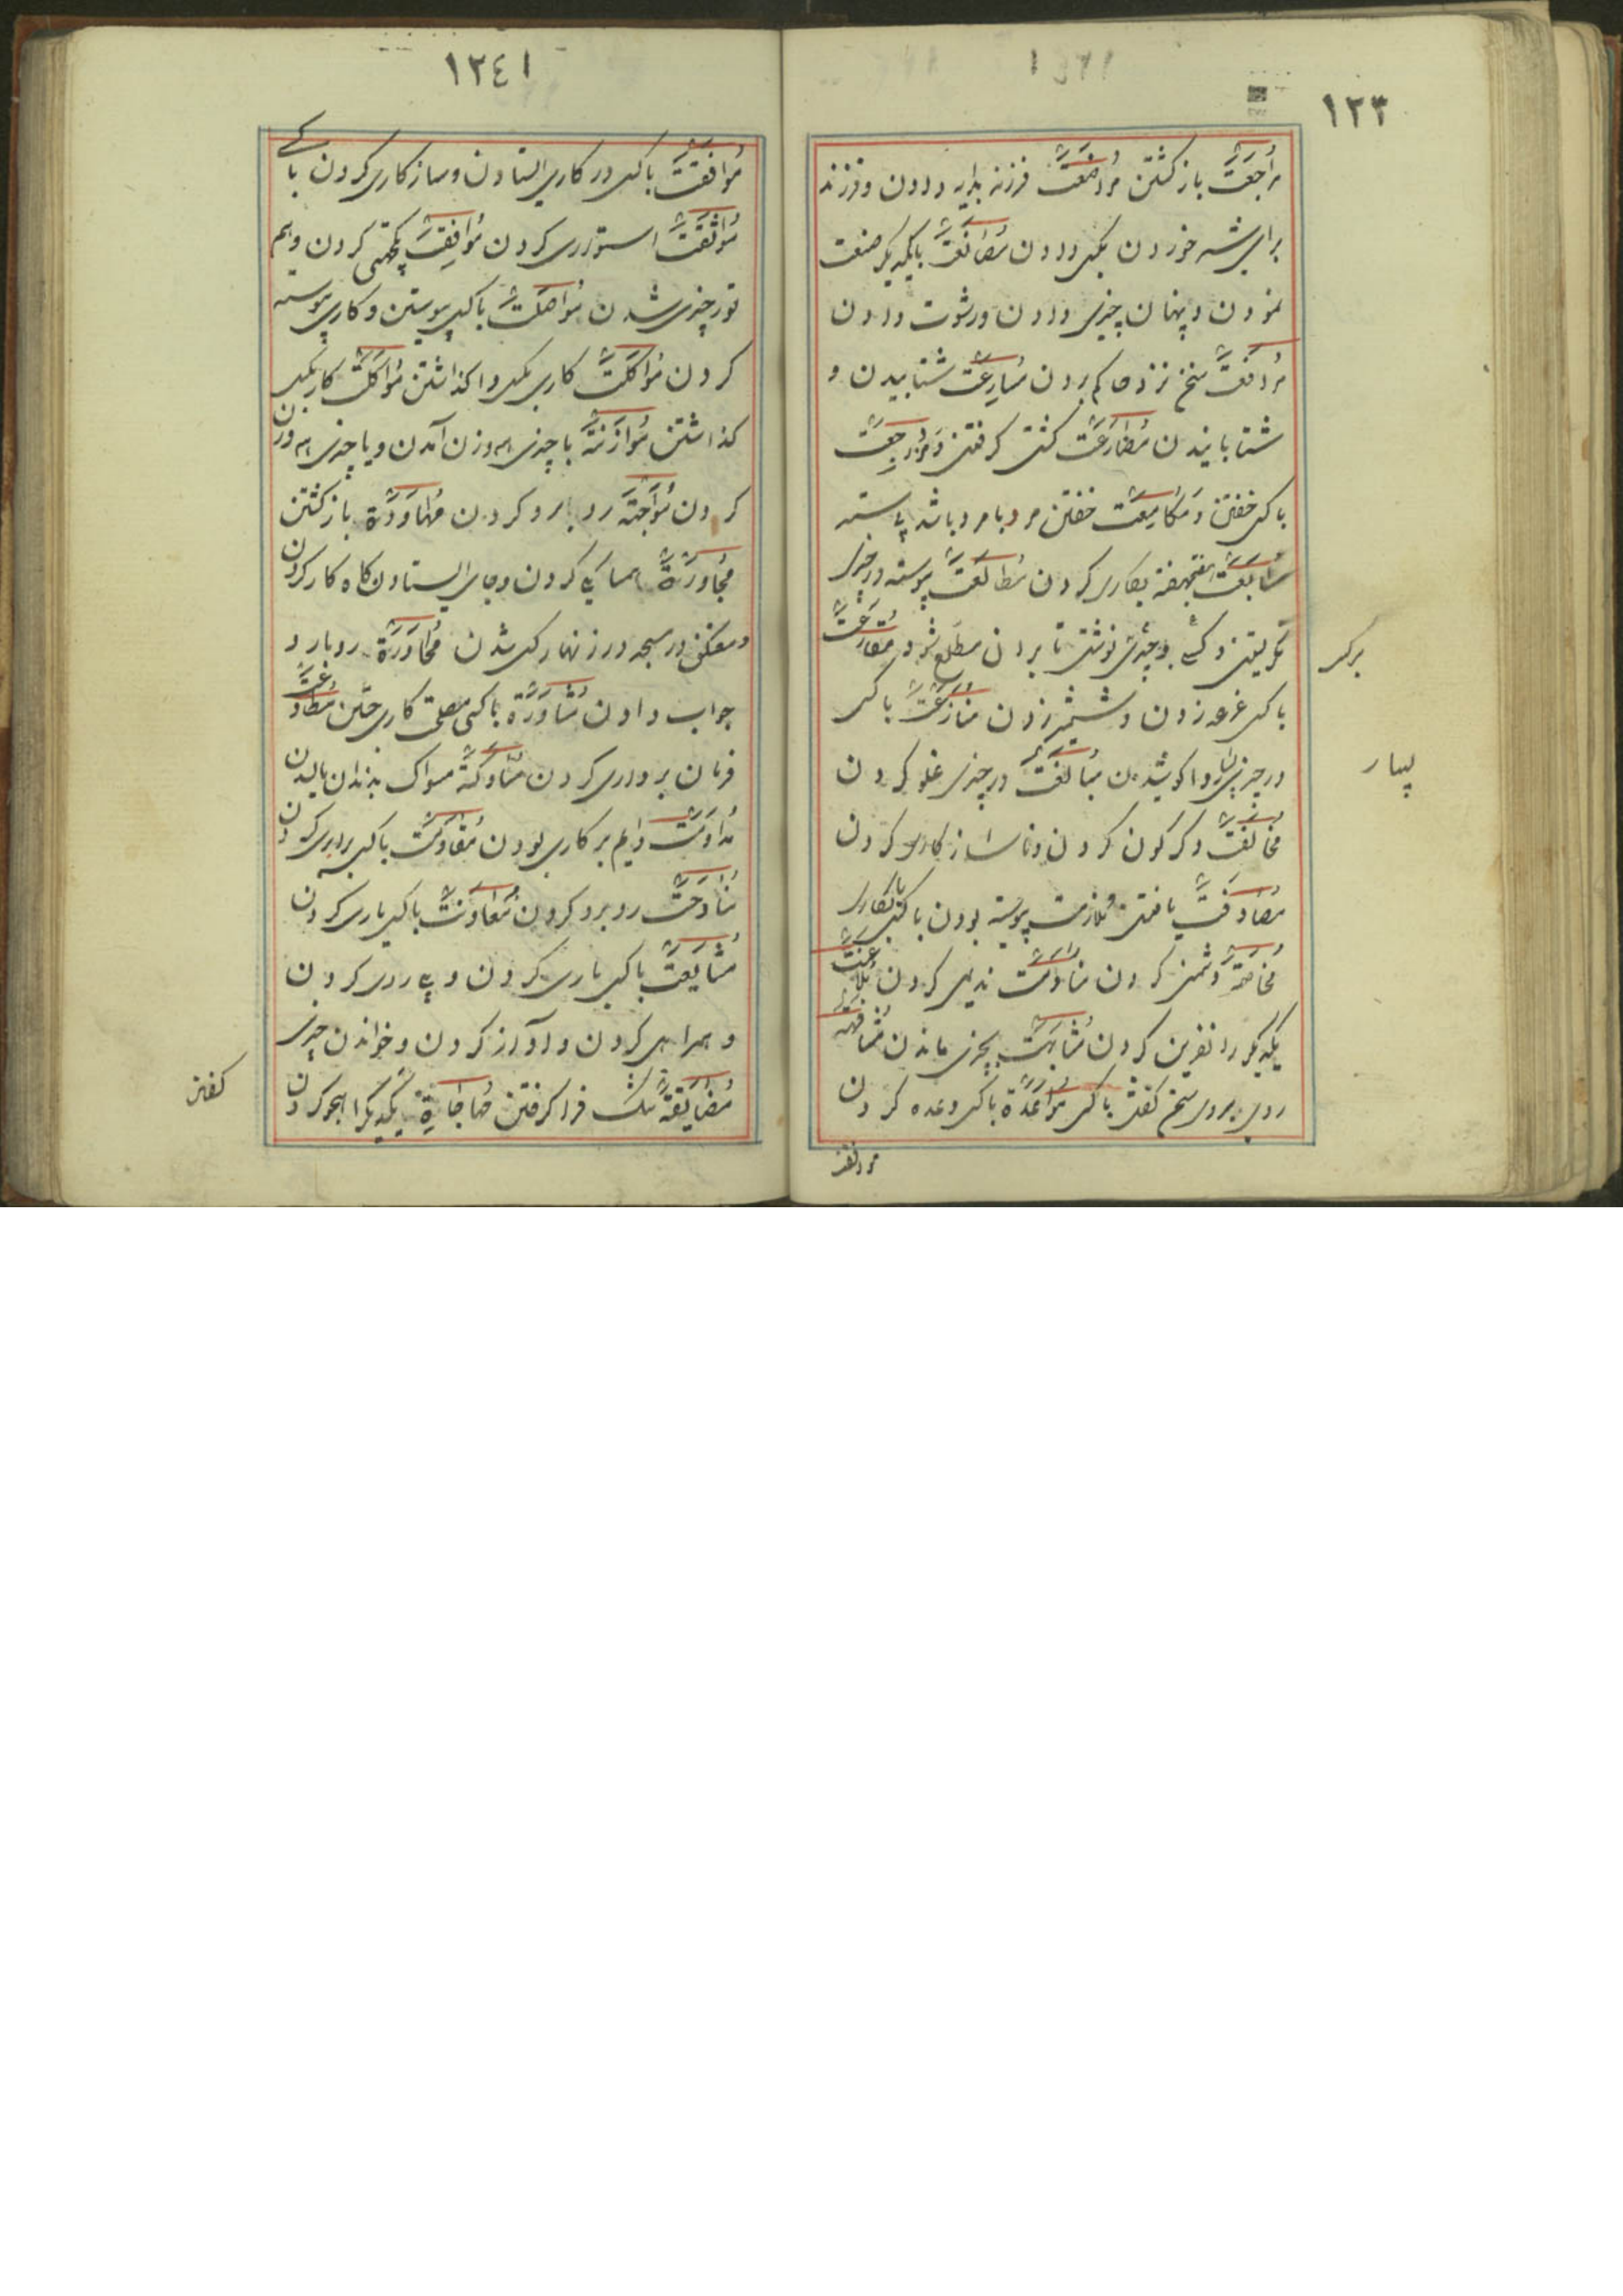 ١٢٣
مُراجَعَتْ باز کشتن مُراضَعَتْ فرزند بدایه دادن و فرزند
برای شیر خوردن بکسی دادن مُصانَعَتْ با یکدیکر صنعت
نمودن و پنهان چیزی دادن و رشوت دادن
مُرافَعَتْ سخن نزد حاکم بردن مُسارِعَتْ شتابیدن و
شتابانیدن مُصارَعَتْ کشتی کرفتن
با کسی خفتن و مُکامِعَتْ خفتن مرد با مرد باشد
کردن مُطالَعَتْ پیوسته در چیزی
نکریستن و چیزی نوشتن تا بر ان مطلع شود مُقارَعَتْ
با کسی قرعه زدن و شمشیر زدن مُنازَعَتْ با کسی
در چیزی واکوشیدن مُبالَغَتْ در چیزی غلو کردن
مُخالَفَتْ دکرکون کردن و ناسازکاری کردن
مُصادَفَتْ یافتن مُلازمت پیوسته بودن با کسی
مُخاصَمَة دشمنی کردن مُنادَمَتْ ندیمی کردن مُلاعَنَتْ
یکدیکر را نفرین کردن مُشابَهَتْ بچیزی ماندن مُشافهه
روی بروی سخن کفتن با کسی مُواعَدَة با کسی وعده کردن
برکسی
موافقت
١٢٤١
مُوافَقَتْ با کسی در کاری ایستادن و سازکاری کردن با کسی
مُواثَقَتْ استواری کردن مُوافِقَتْ کردن و هم
در چیزی شدن مُواصَلَتْ با کسی پیوستن و کاری پیوسته
کردن مُواکَلَتْ کاری بکسی واکذاشتن مُواکَلَتْ کار بکسی
کذاشتن مُوازَنَة با چیزی هم وزن آمدن و یا چیزی هم وزن
کردن مُواجَهَة روبارو کردن مُهاوَدَة باز کشتن
مُجاوَرَة همسایکی کردن و بجای ایستادن کاه کار کردن
و معتکف در مسجد و در زنهار کسی شدن مُحاوَرَة روبارو
جواب دادن مُشاوَرَة با کسی مصلحت کاری جستن مُطاوَعَتْ
فرمان برداری کردن مُساوَکَة مسواک بدندان مالیدن
مُداوَمَتْ دایم بر کاری بودن مُقاوَمَتْ با کسی برابری کردن
مُناوَحَتْ روبرو کردن مُعاوَنَتْ با کسی یاری کردن
مُشایَعَتْ با کسی یاری کردن و پی روی کردن
و همراهی کردن و آواز کردن و خواندن چیزی
مُضایَقَة تنک فرا کرفتن مُهاجاة یکدیکر را هجو کردن
کفتن